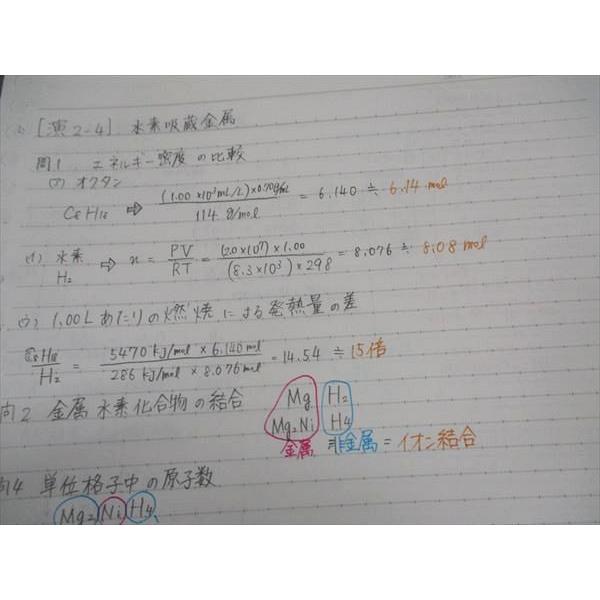 [演2-4] 水素吸蔵金属
問1 エネルギー密度の比較
(ア) オクタン
C8H18 ⇨ (1.00×10³mL/L)×0.70g/mL / 114 g/mol = 6.140 ≒ 6.14 mol
(イ) 水素 H2 ⇨ n = PV/RT = (2.0×10⁷)×1.00 / (8.3×10³)×298 = 8.076 ≒ 8.08 mol
ウ) 1.00Lあたりの燃焼による発熱量の差
C8H18/H2 = 5470 kJ/mol × 6.140 mol / 286 kJ/mol × 8.076 mol = 14.54 ≒ 15倍
問2 金属水素化合物の結合
Mg H2
Mg2Ni H4
金属 非金属 = イオン結合
問4 単位格子中の原子数
Mg2 Ni H4